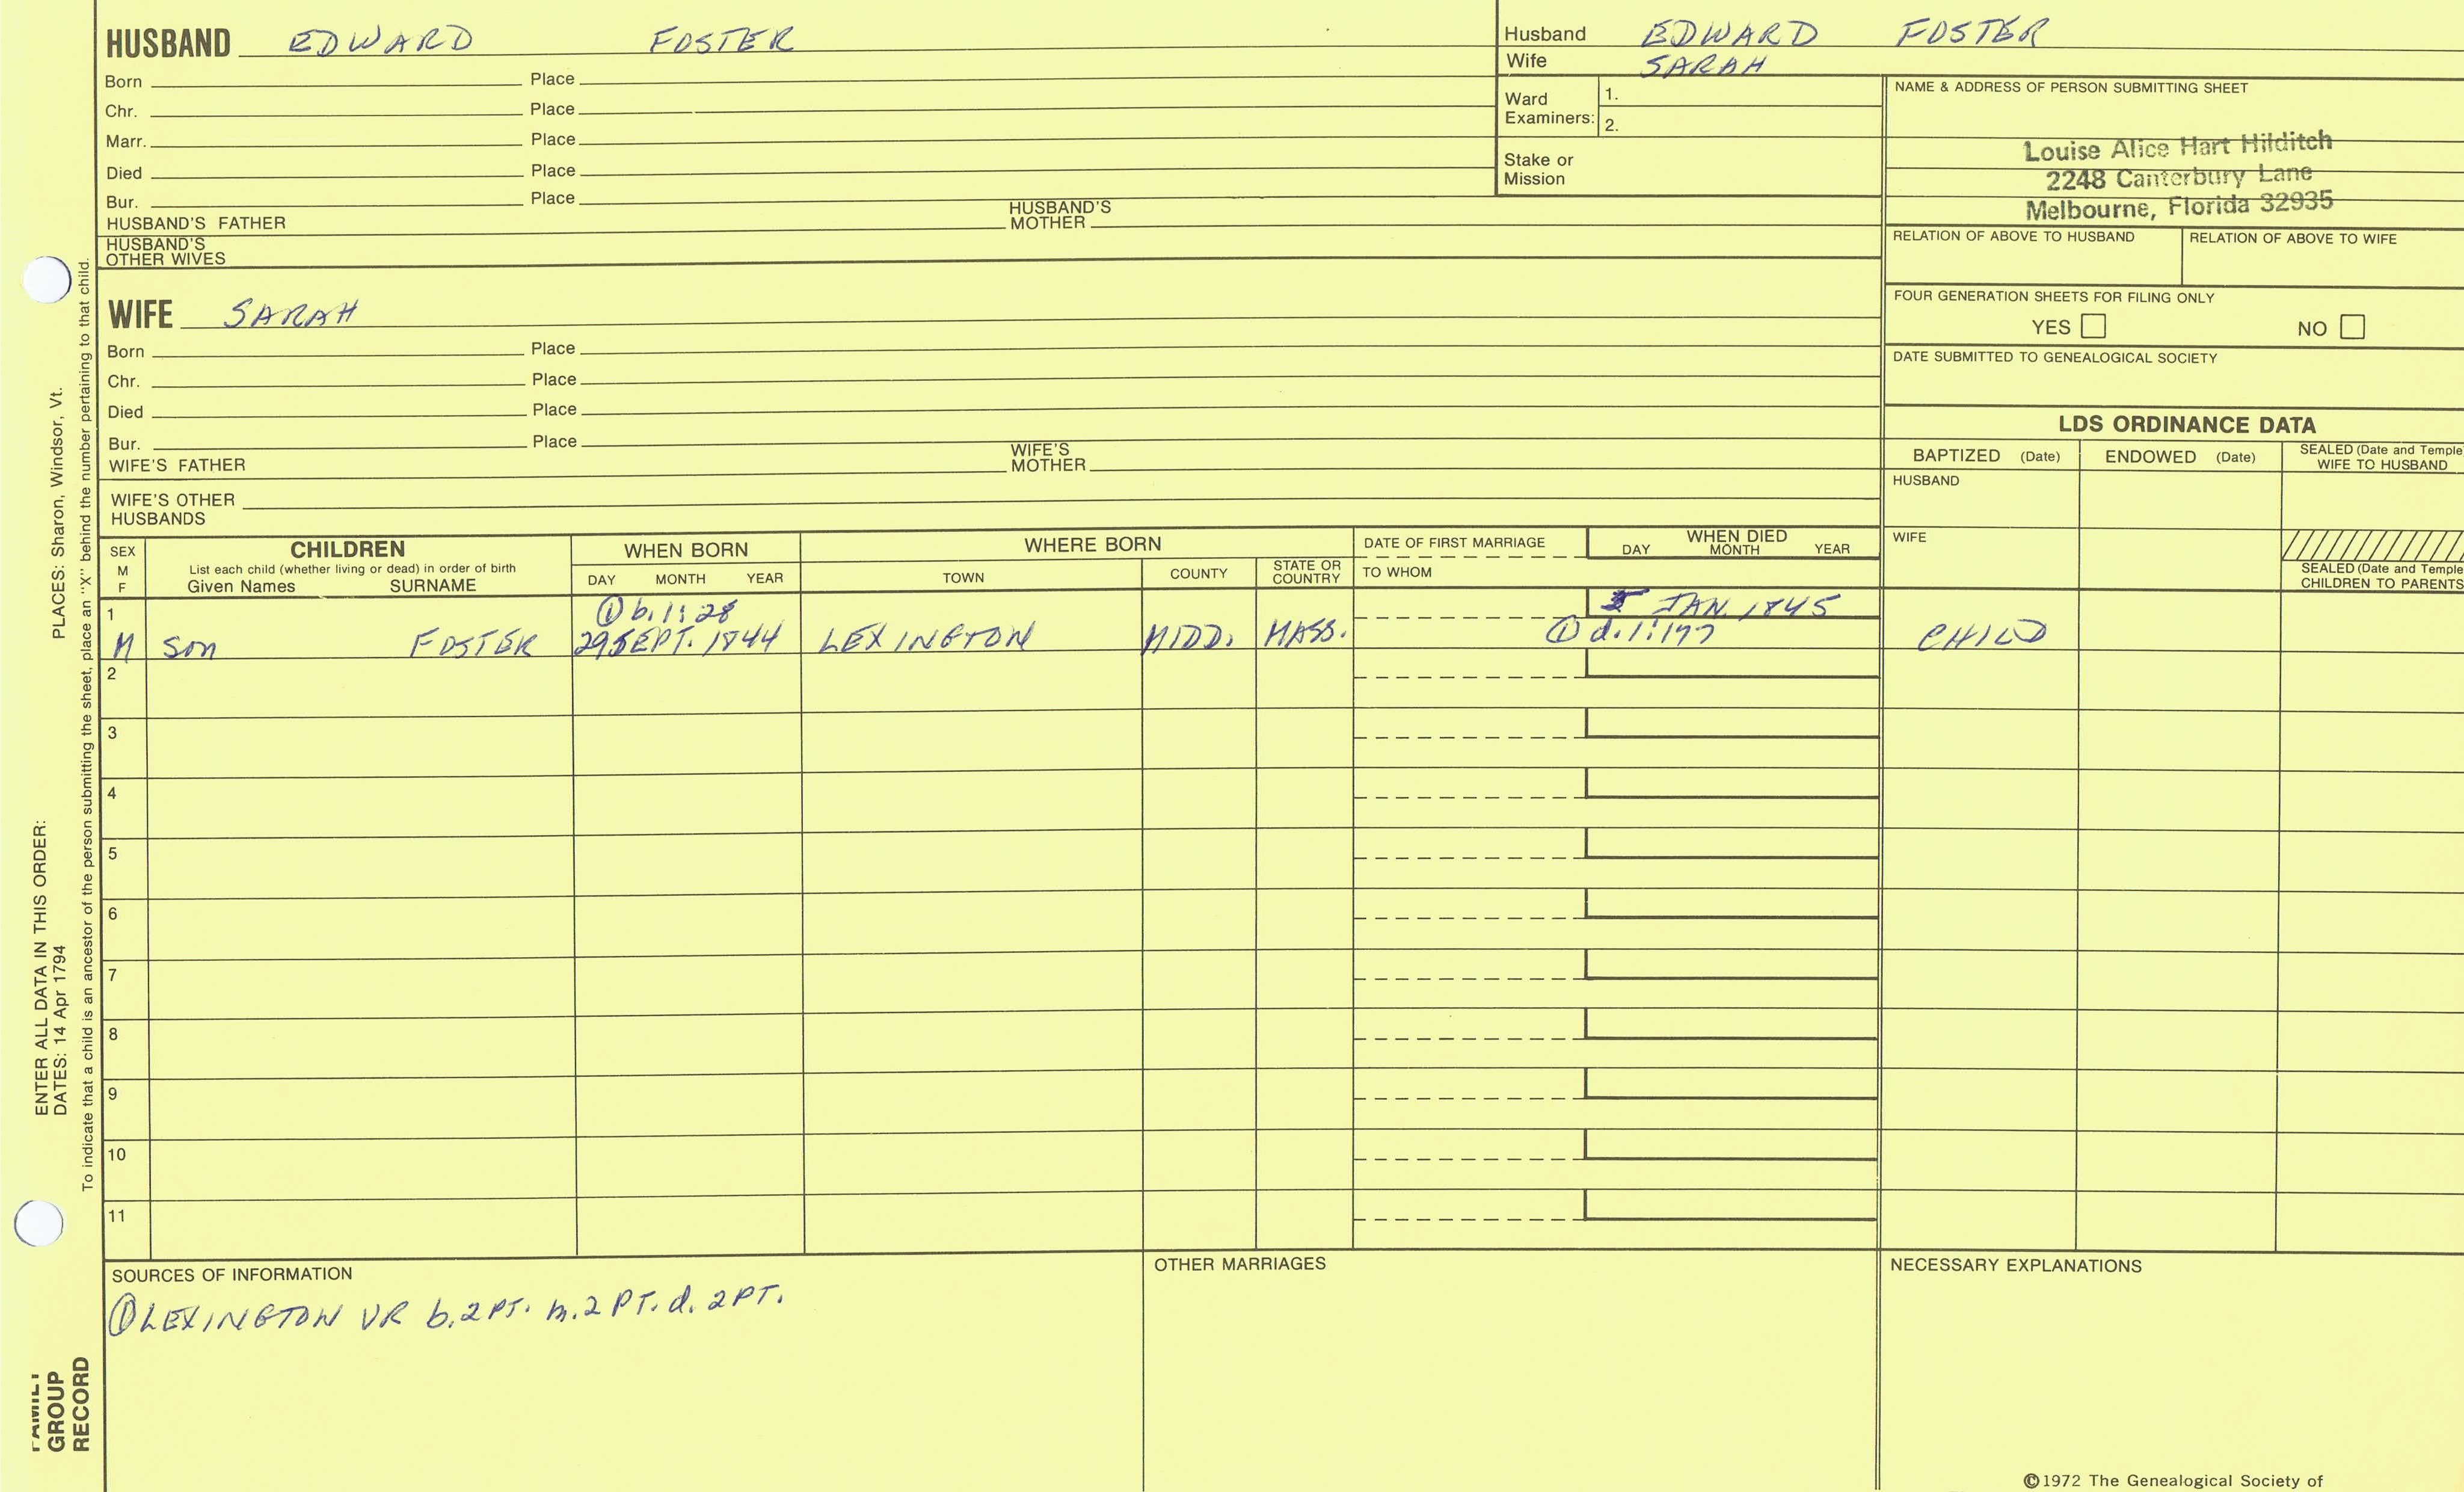 HUSBAND EDWARD FOSTER
Born Place
Chr. Place
Marr. Place
Died Place
Bur. Place
HUSBAND'S FATHER HUSBAND'S MOTHER
HUSBAND'S OTHER WIVES
Husband EDWARD FOSTER
Wife SARAH
Ward Examiners: 1.
2.
Stake or Mission
NAME & ADDRESS OF PERSON SUBMITTING SHEET
Louise Alice Hart Hilditch
2248 Canterbury Lane
Melbourne, Florida 32935
RELATION OF ABOVE TO HUSBAND RELATION OF ABOVE TO WIFE
FOUR GENERATION SHEETS FOR FILING ONLY
YES NO
DATE SUBMITTED TO GENEALOGICAL SOCIETY
WIFE SARAH
Born Place
Chr. Place
Died Place
Bur. Place
WIFE'S FATHER WIFE'S MOTHER
WIFE'S OTHER HUSBANDS
LDS ORDINANCE DATA
BAPTIZED (Date) ENDOWED (Date) SEALED (Date and Temple
WIFE TO HUSBAND
HUSBAND
WIFE
SEALED (Date and Temple
CHILDREN TO PARENTS
SEX M F
CHILDREN
List each child (whether living or dead) in order of birth
Given Names SURNAME
WHEN BORN
DAY MONTH YEAR
WHERE BORN
TOWN COUNTY STATE OR COUNTRY
DATE OF FIRST MARRIAGE
TO WHOM
WHEN DIED
DAY MONTH YEAR
1 ① b. 1:28 5 JAN. 1845
M son FOSTER 29 SEPT. 1844 LEXINGTON MIDD. MASS. ① d. 1:177 CHILD
2
3
4
5
6
7
8
9
10
11
SOURCES OF INFORMATION
① LEXINGTON VR b. 2 PT. m. 2 PT. d. 2 PT.
OTHER MARRIAGES
NECESSARY EXPLANATIONS
©1972 The Genealogical Society of
PLACES: Sharon, Windsor, Vt.
ENTER ALL DATA IN THIS ORDER:
DATES: 14 Apr 1794
To indicate that a child is an ancestor of the person submitting the sheet, place an "X" behind the number pertaining to that child.
FAMILY
GROUP
RECORD